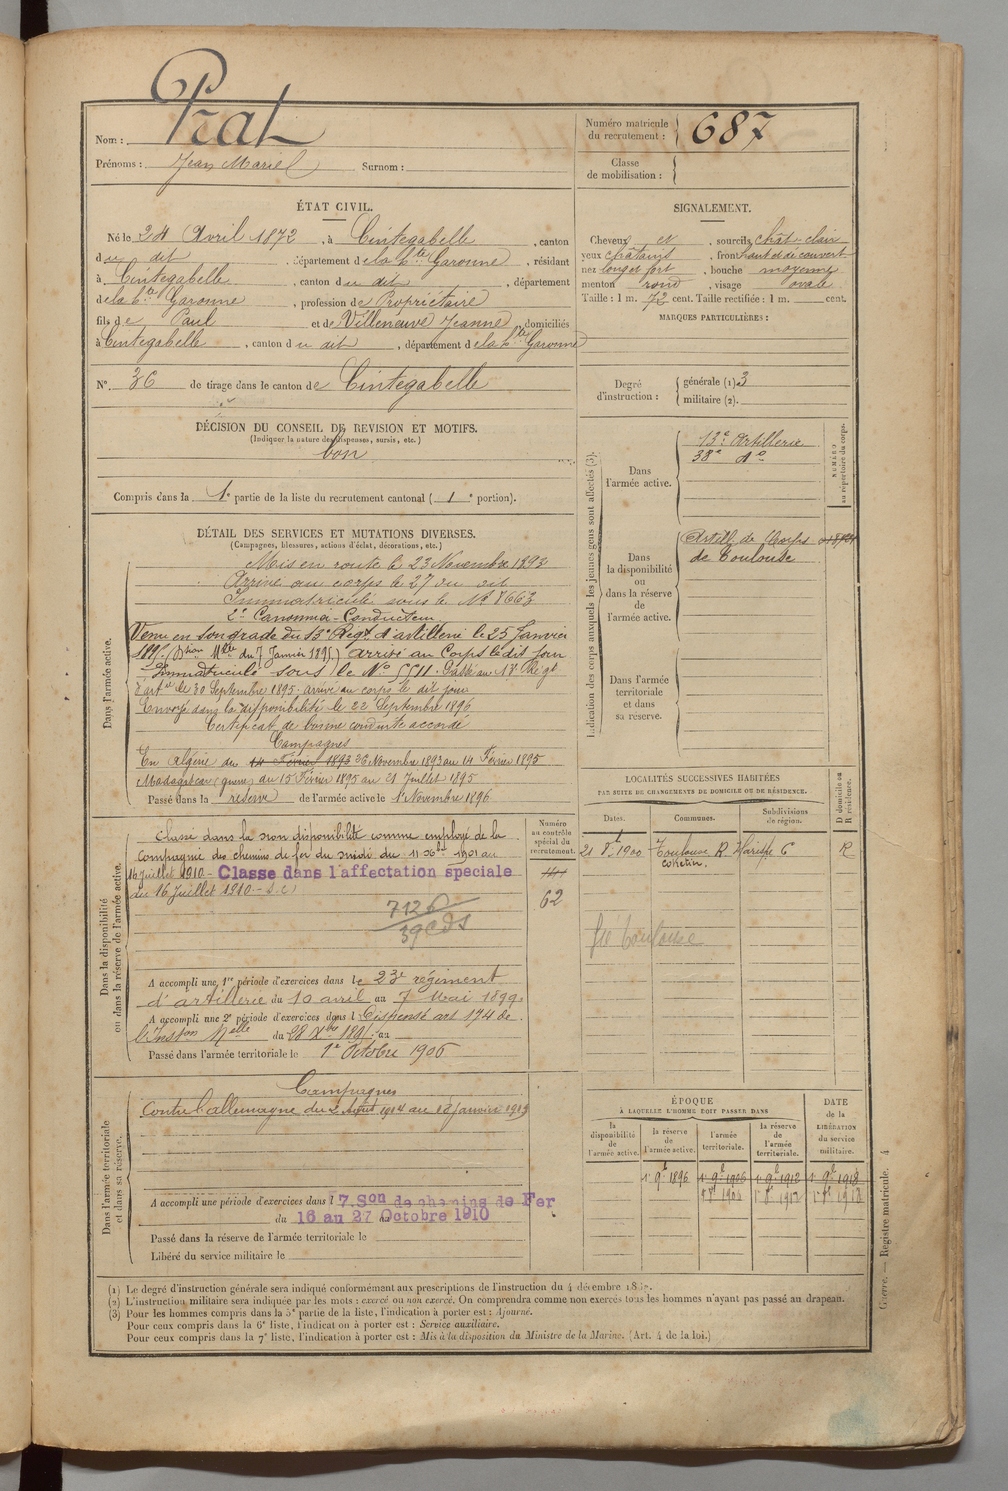 Nom : Prat
Prénoms : Jean Marcel Surnom :
Numéro matricule du recrutement : 687
Classe de mobilisation :
ÉTAT CIVIL.
Né le 24 Avril 1872, à Cintegabelle, canton
du dit, département de la Hte Garonne, résidant
à Cintegabelle, canton du dit, département
de la Hte Garonne, profession de Propriétaire
fils de Paul et de Villeneuve Jeanne, domiciliés
à Cintegabelle, canton du dit, département de la Hte Garonne
N° 36 de tirage dans le canton de Cintegabelle
DÉCISION DU CONSEIL DE REVISION ET MOTIFS.
(Indiquer la nature des dispenses, sursis, etc.)
bon
Compris dans la 1e partie de la liste du recrutement cantonal ( 1e portion).
SIGNALEMENT.
Cheveux et, sourcils chât-clair
yeux châtains, front haut et découvert
nez long et fort, bouche moyenne
menton rond, visage ovale.
Taille : 1 m. 72 cent. Taille rectifiée : 1 m. cent.
MARQUES PARTICULIÈRES :
Degré d'instruction : générale (1) 3
militaire (2).
DÉTAIL DES SERVICES ET MUTATIONS DIVERSES.
(Campagnes, blessures, actions d'éclat, décorations, etc.)
Dans l'armée active.
Mis en route le 23 Novembre 1893
Arrivé au corps le 27 du dit
Immatriculé sous le N° 7663
2e Canonnier-Conducteur
Venu en son grade du 13e Régt d'artillerie le 25 Janvier
(Don Mlle du 7 Janvier 1895) arrivé au Corps le dit jour
Immatriculé sous le N° 5511. Passé au Régt
d'artie le 30 Septembre 1895. arrivé au corps le dit jour
Envoyé dans la disponibilité le 22 Septembre 1896
Certificat de bonne conduite accordé
Campagnes
En Algérie du 14 Février 1893 26 Novembre 1893 au 14 Février 1895
Madagascar (guerre) du 15 Février 1895 au 21 Juillet 1895
Passé dans la réserve de l'armée active le 1r Novembre 1896
Indication des corps auxquels les jeunes gens sont affectés (3).
NUMÉRO au répertoire du corps.
Dans l'armée active.
13e Artillerie
38e do
Dans la disponibilité ou dans la réserve de l'armée active.
Artill. de Corps
de Toulouse
Dans l'armée territoriale et dans sa réserve.
Dans la disponibilité ou dans la réserve de l'armée active.
Classé dans la non disponibilité comme employé de la
Compagnie des chemins de fer du midi du 11 1901 au
16 Juillet 1910 - Classé dans l'affectation speciale
du 16 Juillet 1910 -
7126
39 CDS
Numéro au contrôle spécial du recrutement.
62
A accompli une 1re période d'exercices dans le 23e régiment
d'artillerie du 10 avril au 7 Mai 1899.
A accompli une 2e période d'exercices dans l Dispensé art 174 de
l'Inston Melle du 28 Xbre au
Passé dans l'armée territoriale le 1r Octobre 1906
LOCALITÉS SUCCESSIVES HABITÉES
PAR SUITE DE CHANGEMENTS DE DOMICILE OU DE RÉSIDENCE.
D domicile ou R résidence.
Dates. Communes. Subdivisions de région.
1900 Toulouse R R
Ste Toulouse
Dans l'armée territoriale et dans sa réserve.
Campagnes
Contre l'allemagne du 2 Août 1914 au 10 Janvier 1919
A accompli une période d'exercices dans l 7.Son de chemins de Fer
du 16 au 27 Octobre 1910
Passé dans la réserve de l'armée territoriale le
Libéré du service militaire le
ÉPOQUE
À LAQUELLE L'HOMME DOIT PASSER DANS
DATE de la LIBÉRATION du service militaire.
la disponibilité de l'armée active. la réserve de l'armée active. l'armée territoriale. la réserve de l'armée territoriale.
1r 9bre 1896 1r 9bre 1906 1r 9bre 1912 1r 9bre 1918
Guerre. — Registre matricule. 4
(1) Le degré d'instruction générale sera indiqué conformément aux prescriptions de l'instruction du 4 décembre
(2) L'instruction militaire sera indiquée par les mots : exercé ou non exercé. On comprendra comme non exercés tous les hommes n'ayant pas passé au drapeau.
(3) Pour les hommes compris dans la 5e partie de la liste, l'indication à porter est : Ajourné.
Pour ceux compris dans la 6e liste, l'indication à porter est : Service auxiliaire.
Pour ceux compris dans la 7e liste, l'indication à porter est : Mis à la disposition du Ministre de la Marine. (Art. 4 de la loi.)